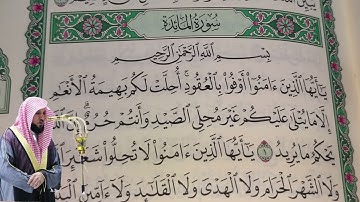 سُورَةُ المَائِدَةِ
بِسْمِ اللَّهِ الرَّحْمَٰنِ الرَّحِيمِ
يَٰٓأَيُّهَا ٱلَّذِينَ ءَامَنُوٓاْ أَوْفُواْ بِٱلْعُقُودِ أُحِلَّتْ لَكُم بَهِيمَةُ ٱلْأَنْعَٰمِ
إِلَّا مَا يُتْلَىٰ عَلَيْكُمْ غَيْرَ مُحِلِّي ٱلصَّيْدِ وَأَنتُمْ حُرُمٌ إِنَّ ٱللَّ
يَحْكُمُ مَا يُرِيدُ ١ يَٰٓأَيُّهَا ٱلَّذِينَ ءَامَنُواْ لَا تُحِلُّواْ شَعَٰٓئِرَ ٱ
وَلَا ٱلشَّهْرَ ٱلْحَرَامَ وَلَا ٱلْهَدْيَ وَلَا ٱلْقَلَٰٓئِدَ وَلَآ ءَآمِّينَ ٱلْبَ